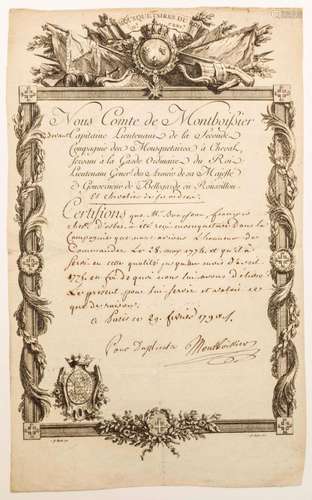 MOUSQUETAIRES DU
Nous Comte de Montboissier
Capitaine Lieutenant de la Seconde
Compagnie des Mousquetaires à Cheval
servant à la Garde Ordinaire du Roi
Lieutenant Gener.^l des Armées de sa Majesté
& Gouverneur de Bellegarde en Roussillon
et chevalier de ses ordres
Certifions que Mr. François
a été reçu mousquetaire dans la
Compagnie que nous avions l'honneur de
Commander Le 28. 1774. et qu'il a
servi en cette qualité jusqu'au
1776 en foi de quoi nous lui avons
Le présent pour lui servir et valoir ce
que de raison.
à Paris ce 29. février
Pour Duplicata Montboissier